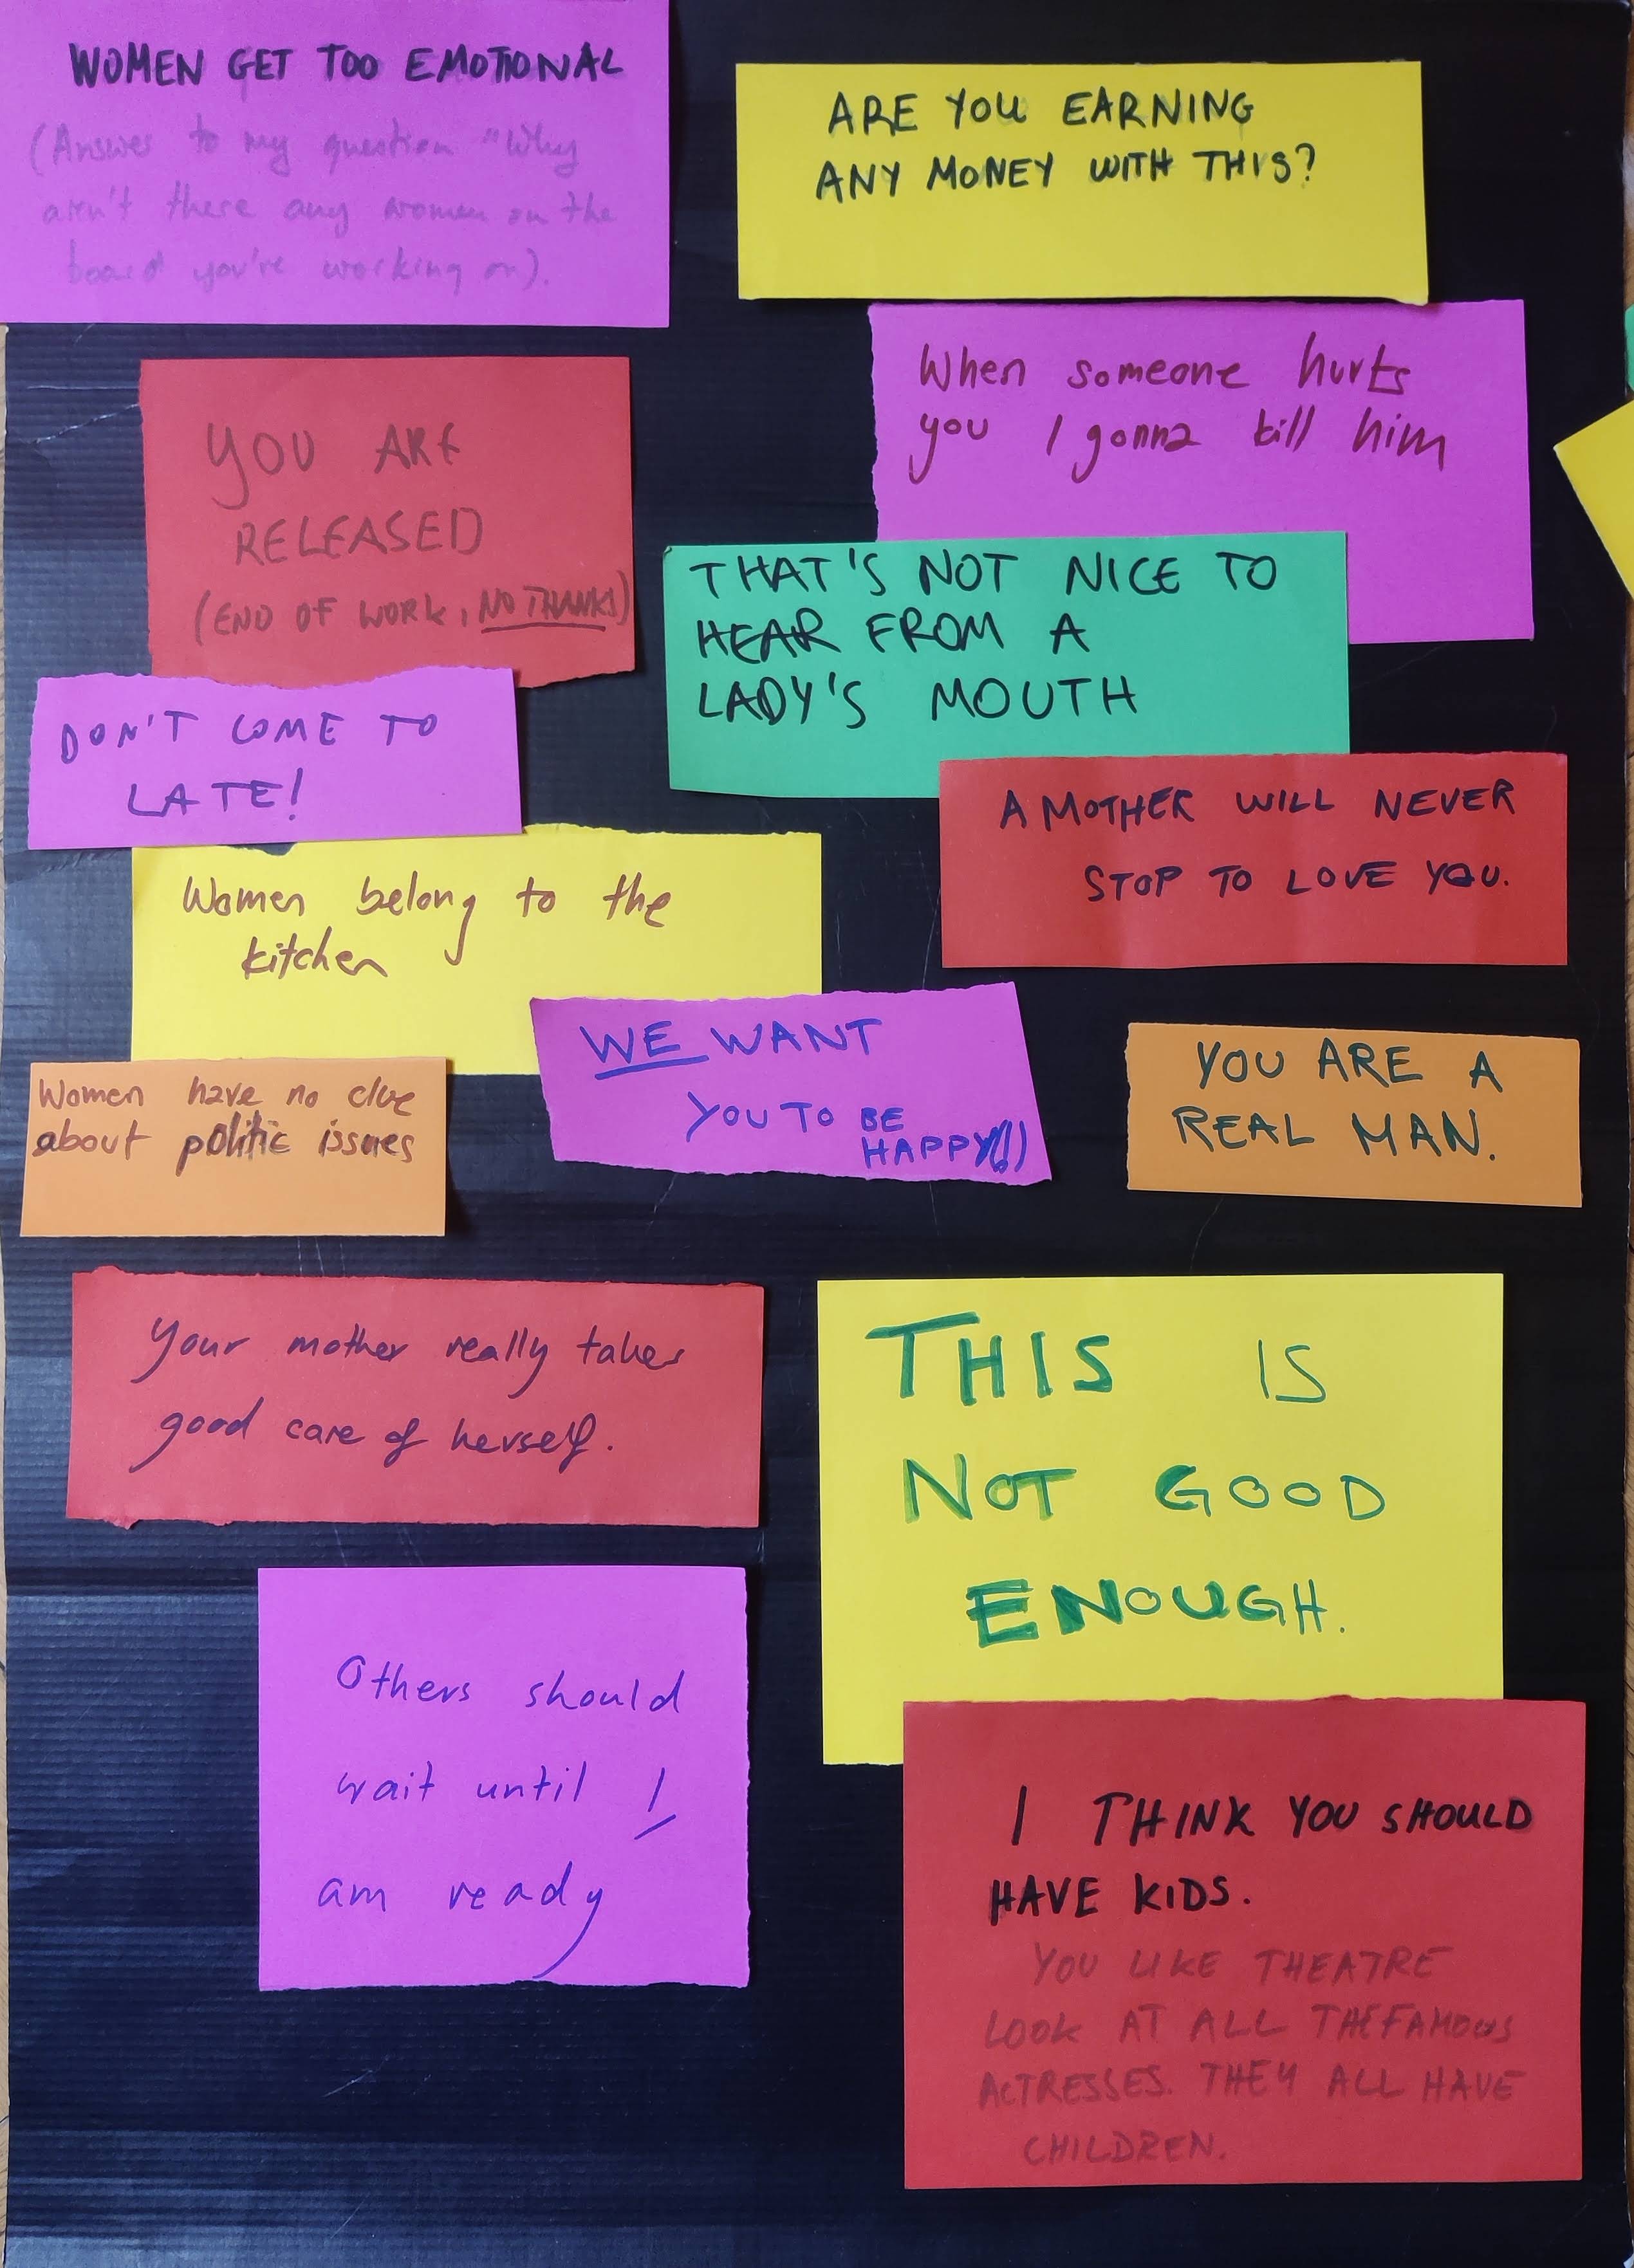 WOMEN GET TOO EMOTIONAL
(Answer to my question "Why
aren't there any women on the
board you're working on).
ARE YOU EARNING
ANY MONEY WITH THIS?
When someone hurts
you I gonna kill him
YOU ARE
RELEASED
(END OF WORK, NO THANKS)
THAT'S NOT NICE TO
HEAR FROM A
LADY'S MOUTH
DON'T COME TO
LATE!
A MOTHER WILL NEVER
STOP TO LOVE YOU.
Women belong to the
kitchen
WE WANT
YOU TO BE
HAPPY!!)
YOU ARE A
REAL MAN.
Women have no clue
about politic issues
Your mother really takes
good care of herself.
THIS IS
NOT GOOD
ENOUGH.
Others should
wait until I
am ready
I THINK YOU SHOULD
HAVE KIDS.
YOU LIKE THEATRE
LOOK AT ALL THE FAMOUS
ACTRESSES. THEY ALL HAVE
CHILDREN.